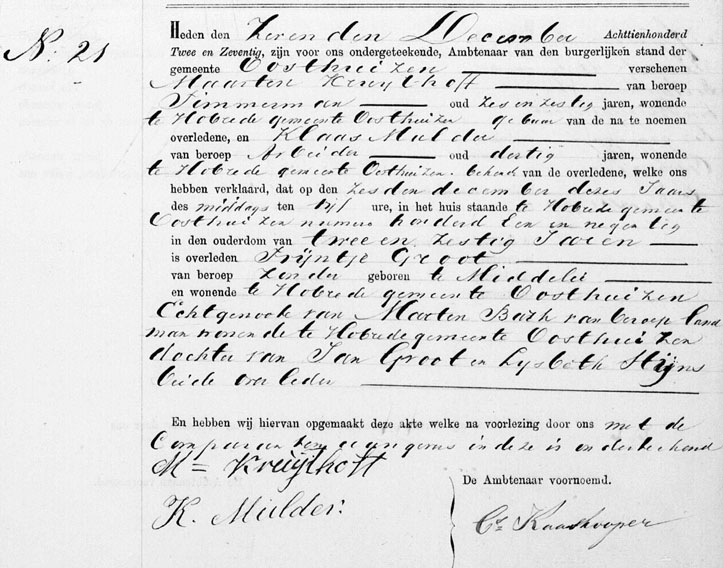 N. 21
Heden den Zevenden December Achttienhonderd
Twee en Zeventig, zijn voor ons ondergeteekende, Ambtenaar van den burgerlijken stand der
gemeente Oosthuizen verschenen
Maarten Kruijthoff van beroep
Timmerman oud zes en zestig jaren, wonende
te Hobrede gemeente Oosthuizen gebuur van de na te noemen
overledene, en Klaas Mulder
van beroep Arbeider oud dertig jaren, wonende
te Hobrede gemeente Oosthuizen bekende van de overledene, welke ons
hebben verklaard, dat op den zesden december dezes Jaars
des middags ten vijf ure, in het huis staande te Hobrede gemeente
Oosthuizen numero honderd Een en negentig
in den ouderdom van twee en zestig Jaren
is overleden Trijntje Groot
van beroep zonder geboren te Middelie
en wonende te Hobrede gemeente Oosthuizen
Echtgenoote van Maarten Bark van beroep land
man wonende te Hobrede gemeente Oosthuizen
dochter van Jan Groot en Lysbeth
beide overleden
En hebben wij hiervan opgemaakt deze akte welke na voorlezing door ons met de
Comparanten in deze is onderteekend
M= Kruijthoff
De Ambtenaar voornoemd.
K. Mulder
Cs Kaaskooper